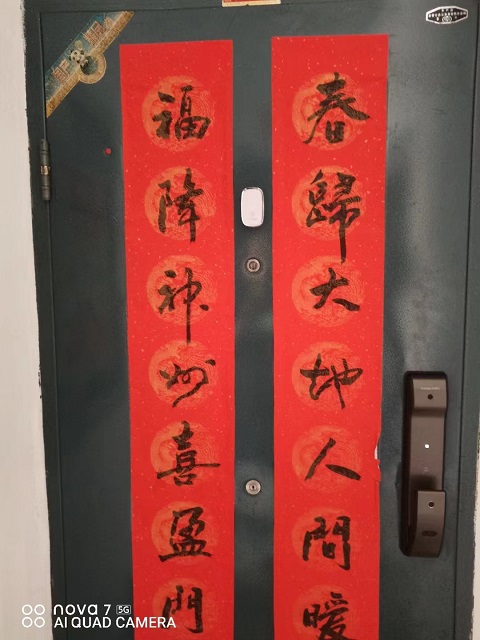 春歸大地人間暖
福降神州喜盈門
nova 7 5G
AI QUAD CAMERA